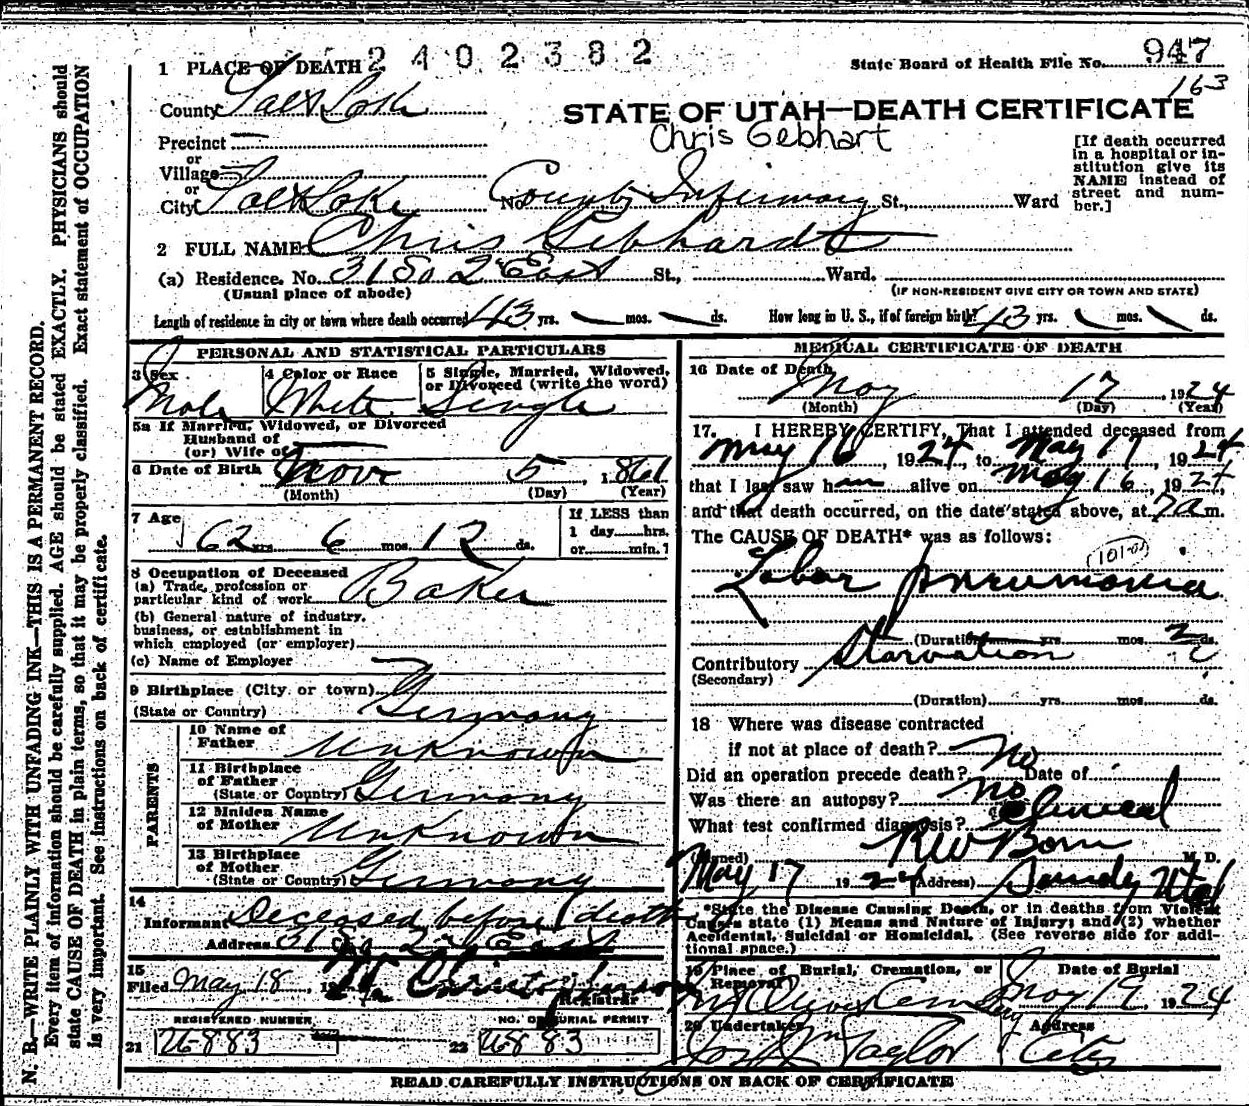 2402382
State Board of Health File No. 947
163
1 PLACE OF DEATH
County Salt Lake
STATE OF UTAH—DEATH CERTIFICATE
Chris Gebhart
Precinct —
or
Village
or
City Salt Lake No. County Infirmary St., Ward
[If death occurred
in a hospital or in-
stitution give its
NAME instead of
street and num-
ber.]
2 FULL NAME Chris Gebhardt
(a) Residence. No. 31 So 2nd East St., Ward.
(Usual place of abode)
(IF NON-RESIDENT GIVE CITY OR TOWN AND STATE)
Length of residence in city or town where death occurred 43 yrs. — mos. — ds. How long in U. S., if of foreign birth? 43 yrs. mos. ds.
PERSONAL AND STATISTICAL PARTICULARS
3 Sex 4 Color or Race 5 Single, Married, Widowed,
or Divorced (write the word)
Male White Single
5a If Married, Widowed, or Divorced
Husband of
(or) Wife of
6 Date of Birth Nov 5, 1861
(Month) (Day) (Year)
7 Age 62 yrs. 6 mos. 12 ds.
If LESS than
1 day hrs.
or min.?
8 Occupation of Deceased
(a) Trade, profession or
particular kind of work Baker
(b) General nature of industry,
business, or establishment in
which employed (or employer)
(c) Name of Employer
9 Birthplace (City or town)
(State or Country) Germany
PARENTS
10 Name of
Father Unknown
11 Birthplace
of Father
(State or Country) Germany
12 Maiden Name
of Mother Unknown
13 Birthplace
of Mother
(State or Country) Germany
14
Informant Deceased before death
Address 31 So 2nd East
15
Filed May 18, 19
Registrar
REGISTERED NUMBER NO. OF BURIAL PERMIT
21 U-883 22 U-883
MEDICAL CERTIFICATE OF DEATH
16 Date of Death
May 17, 1924
(Month) (Day) (Year)
17. I HEREBY CERTIFY, That I attended deceased from
May 16, 1924, to May 17, 1924
that I last saw him alive on May 16, 1924,
and that death occurred, on the date stated above, at 7 a m.
The CAUSE OF DEATH* was as follows:
Lobar pneumonia
(Duration) yrs. mos. 2 ds.
Contributory Starvation
(Secondary)
(Duration) yrs. mos. ds.
18 Where was disease contracted
if not at place of death?
Did an operation precede death? No Date of
Was there an autopsy? no
What test confirmed diagnosis? Clinical
(Signed) M. D.
May 17 1924 (Address) Sandy Utah
*State the Disease Causing Death, or in deaths from Violent
Causes state (1) Means and Nature of Injury; and (2) whether
Accidental, Suicidal or Homicidal. (See reverse side for addi-
tional space.)
19 Place of Burial, Cremation, or
Removal
Date of Burial
Mt Olivet Cemetery May 19 1924
20 Undertaker Address
Taylor City
READ CAREFULLY INSTRUCTIONS ON BACK OF CERTIFICATE
N. B.—WRITE PLAINLY WITH UNFADING INK—THIS IS A PERMANENT RECORD.
Every item of information should be carefully supplied. AGE should be stated EXACTLY. PHYSICIANS should
state CAUSE OF DEATH in plain terms, so that it may be properly classified. Exact statement of OCCUPATION
is very important. See instructions on back of certificate.